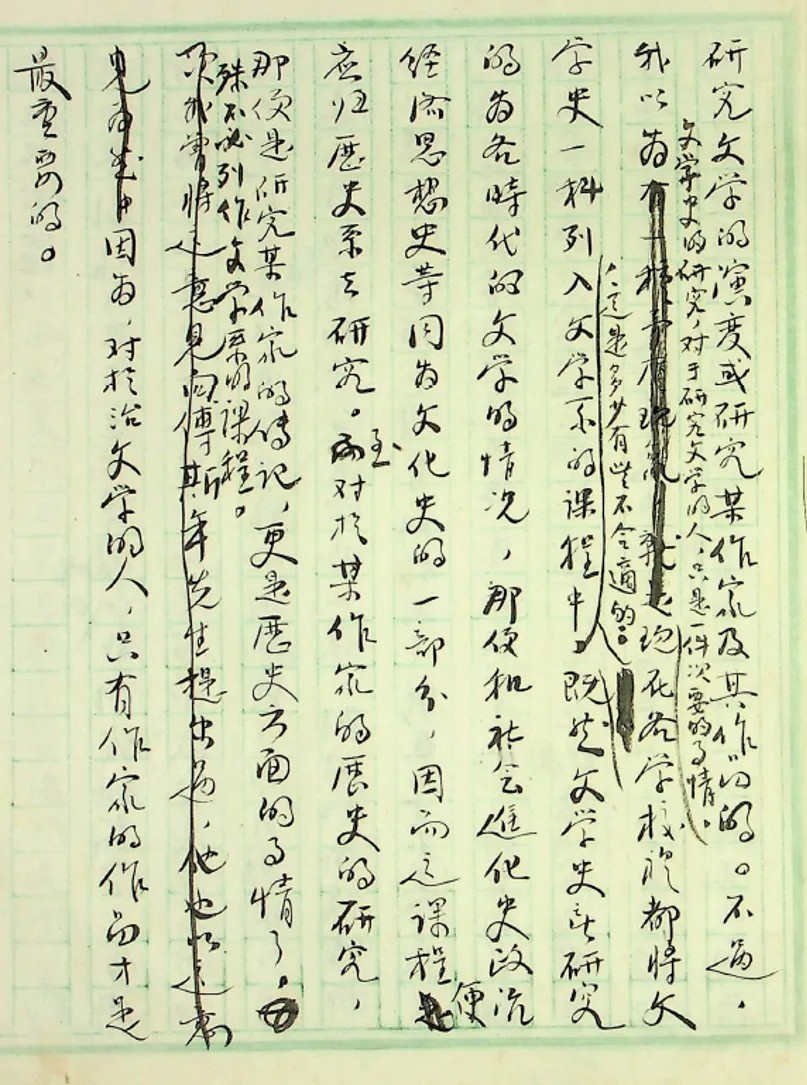 研究文学的演变或研究某作家及其作品的。不过，
文学史的研究，对于研究文学的人，只是一件次要的事情。
我以为现在各学校都将文
学史一科列入文学系的课程中，
这是多少有些不合适的。
既然文学史是研究
的为各时代的文学的情况，那便和社会进化史政治
经济思想史等同为文化史的一部分，因而这课程便
应归历史系去研究。至对于某作家的历史的研究，
那便是研究某作家的传记，更是历史方面的事情了。
殊不必列作文学系的课程。
次我曾将这意见向傅斯年先生提出过，他也以这意
见为然，因为，对于治文学的人，只有作家的作品才是
最重要的。